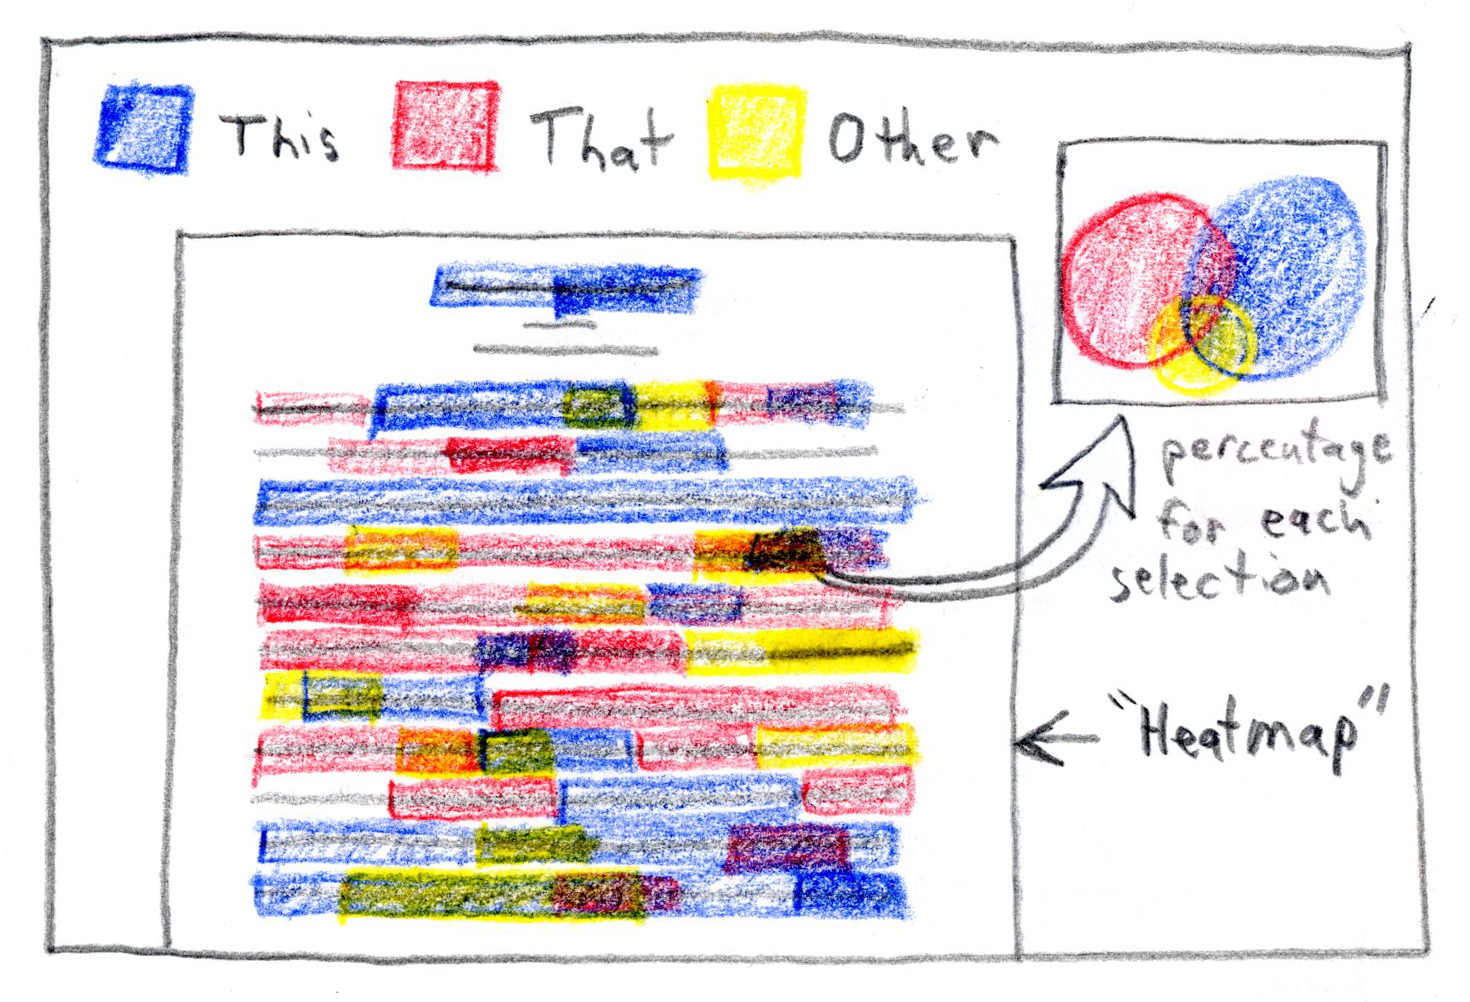 This That Other
percentage
for each
selection
"Heatmap"